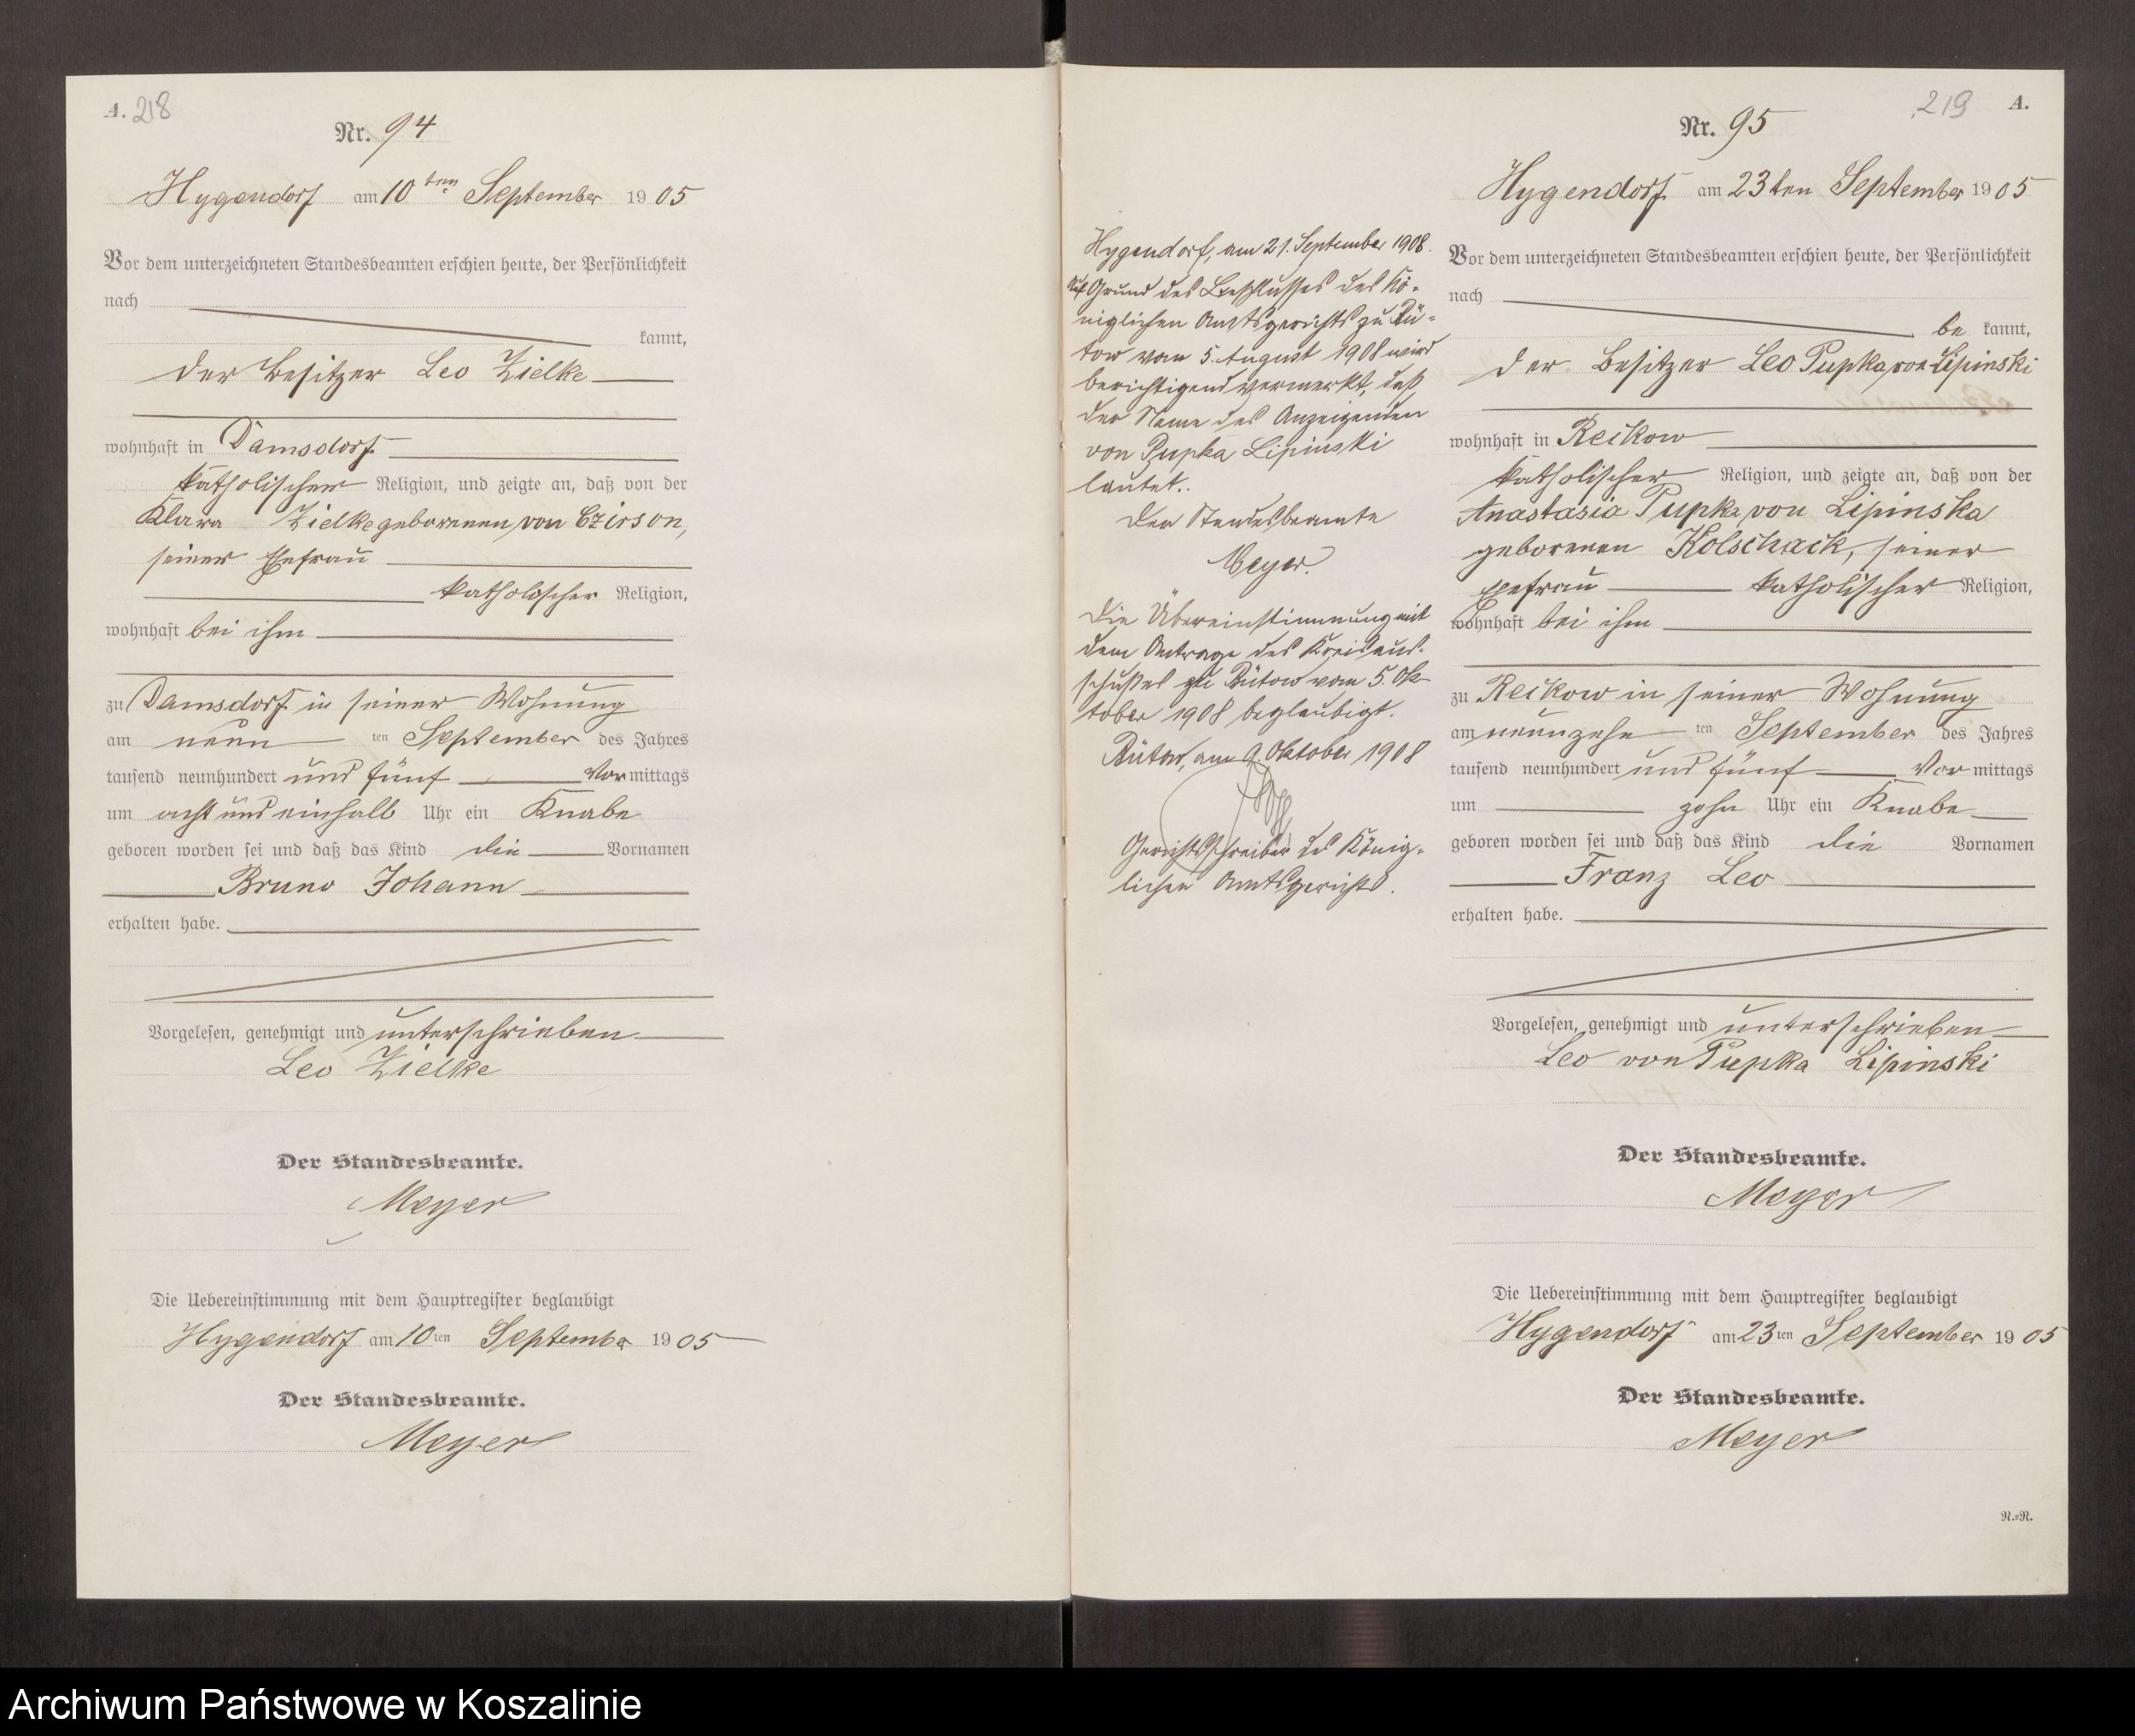 A. 218
Nr. 94
Hygendorf am 10ten September 1905
Vor dem unterzeichneten Standesbeamten erschien heute, der Persönlichkeit
nach
kannt,
der Besitzer Leo Zielke
wohnhaft in Damsdorf
katholischer Religion, und zeigte an, daß von der
Klara Zielke geborenen von Czirson,
seiner Ehefrau
katholischer Religion,
wohnhaft bei ihm
zu Damsdorf in seiner Wohnung
am neun ten September des Jahres
tausend neunhundert und fünf Vormittags
um acht und einhalb Uhr ein Knabe
geboren worden sei und daß das Kind die Vornamen
Bruno Johann
erhalten habe.
Vorgelesen, genehmigt und unterschrieben
Leo Zielke
Der Standesbeamte.
Meyer
Die Uebereinstimmung mit dem Hauptregister beglaubigt
Hygendorf am 10ten September 1905
Der Standesbeamte.
Meyer
Hygendorf, am 21. September 1908.
Auf Grund des Beschlusses des Kö-
niglichen Amtsgerichts zu Bü-
tow vom 5. August 1908 wird
berichtigend vermerkt, daß
der Name des Anzeigenden
von Pupka Lipinski
lautet.
Der Standesbeamte
Meyer.
Die Übereinstimmung mit
dem Antrage des Kreisaus-
schusses zu Bütow vom 5. Ok-
tober 1908 beglaubigt.
Bütow, am 9. Oktober 1908
Gerichtsschreiber des König-
lichen Amtsgerichts.
219 A.
Nr. 95
Hygendorf am 23ten September 1905
Vor dem unterzeichneten Standesbeamten erschien heute, der Persönlichkeit
nach
be kannt,
der Besitzer Leo Pupka von Lipinski
wohnhaft in Reckow
katholischer Religion, und zeigte an, daß von der
Anastasia Pupka von Lipinska
geborenen Kolschack, seiner
Ehefrau katholischer Religion,
wohnhaft bei ihm
zu Reckow in seiner Wohnung
am neunzehn ten September des Jahres
tausend neunhundert und fünf Vor mittags
um zehn Uhr ein Knabe
geboren worden sei und daß das Kind die Vornamen
Franz Leo
erhalten habe.
Vorgelesen, genehmigt und unterschrieben
Leo von Pupka Lipinski
Der Standesbeamte.
Meyer
Die Uebereinstimmung mit dem Hauptregister beglaubigt
Hygendorf am 23ten September 1905
Der Standesbeamte.
Meyer
N.=R.
Archiwum Państwowe w Koszalinie